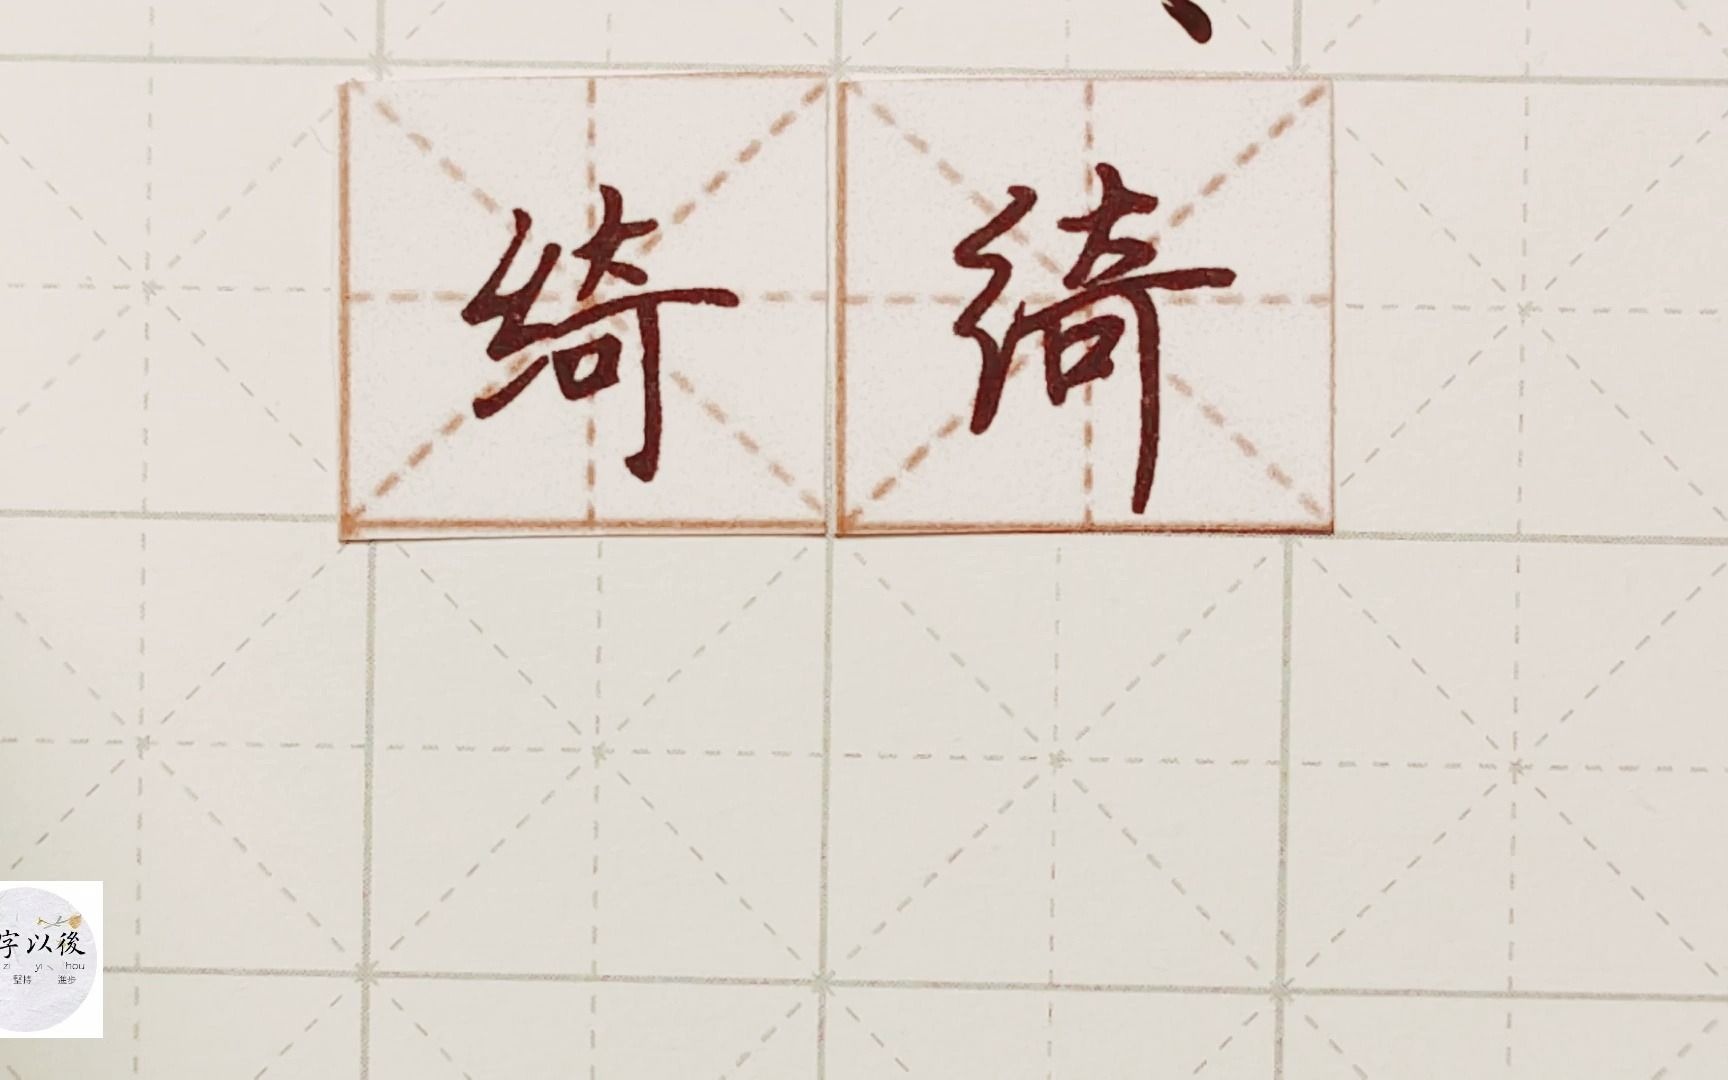 绮 绮
字以後
zi yi hou
堅持 進步